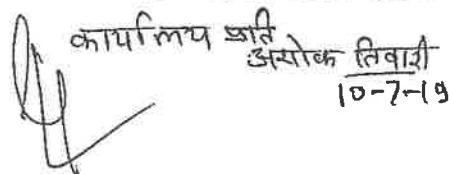 कार्यालय प्रति
अशोक तिवारी
10-7-19